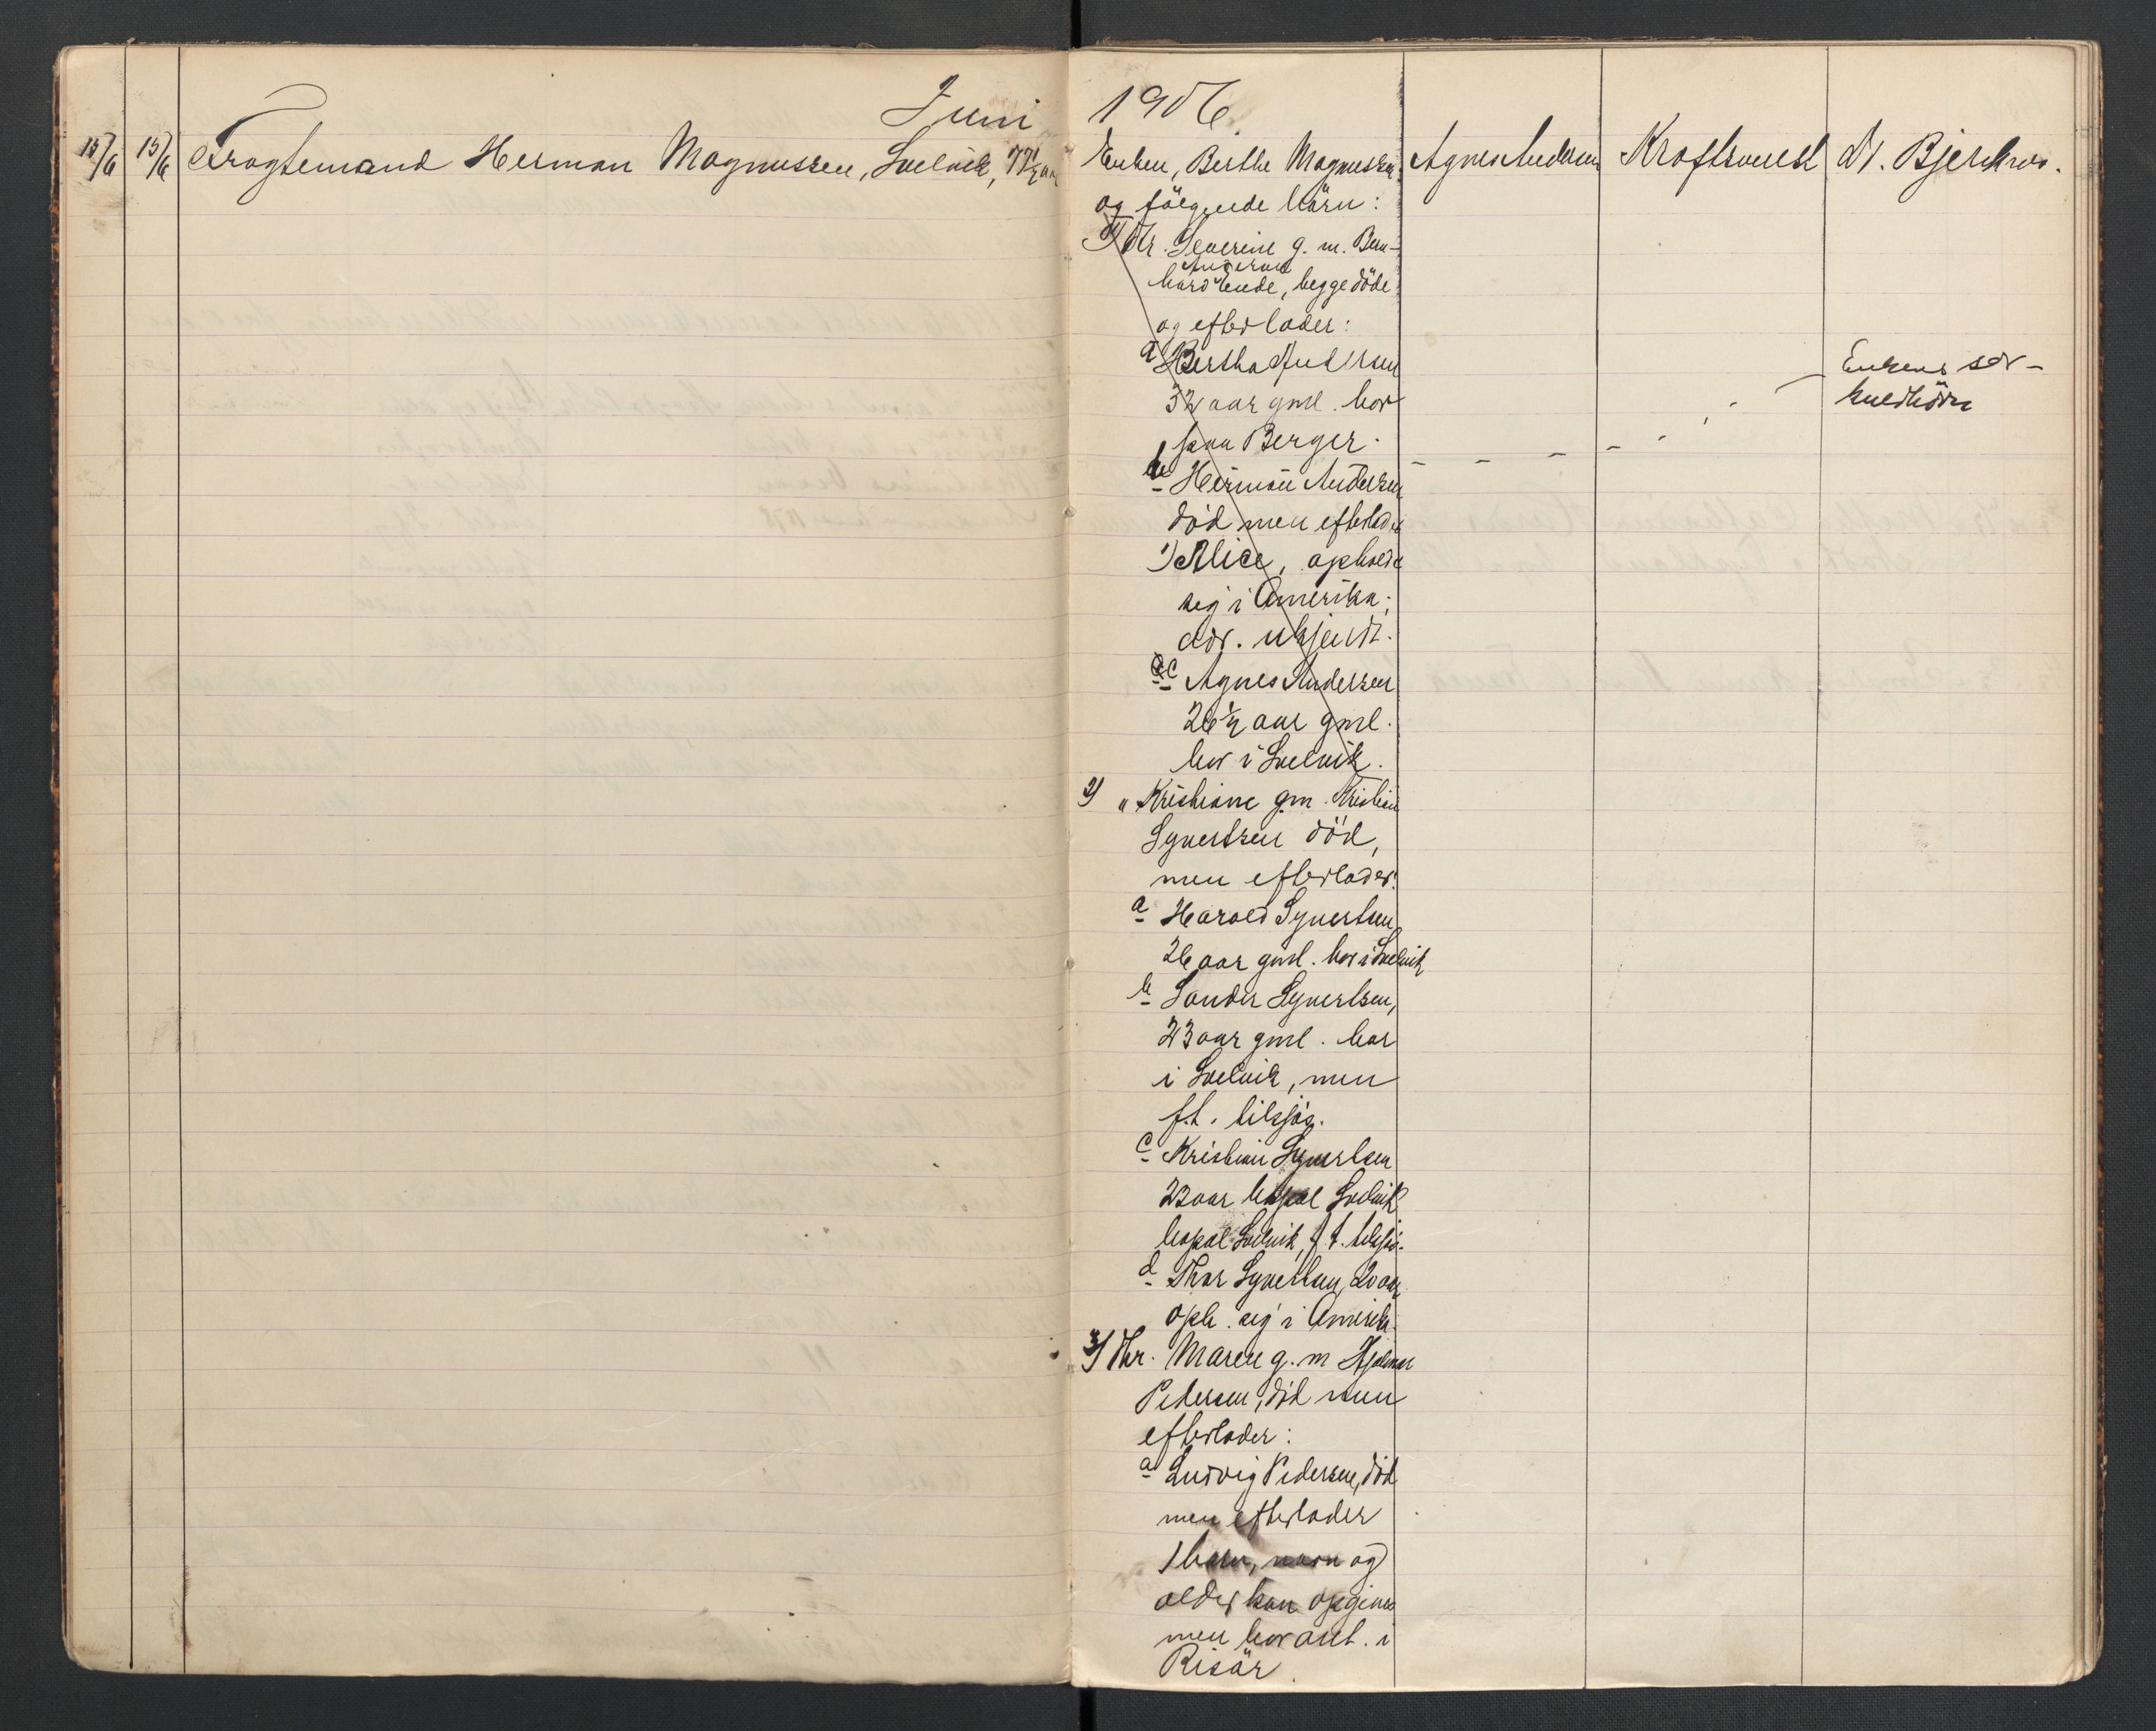 Juni 1906.
15/6 15/6 Fragtemand Herman Magnussen, Svelvik, 77½ aar
Enken, Berthe Magnussen
og fölgende börn:
1) Dtr. Severine g. m. Bern-
Andersen
hard Ende, begge döde
og efterlader:
a Bertha Andersen
32 aar gml. bor
paa Berger.
b Herman Andersen
död men efterlader
1) Alice, opholder
sig i Amerika;
adr. ukjendt.
c Agnes Andersen
26½ aar gml.
bor i Svelvik.
2) " Kristiane gm. Kristian
Syvertsen död,
men efterlader:
a Harald Syvertsen
26 aar gml. bor i Svelvik
b Sander Syvertsen,
23 aar gml. bor
i Svelvik, men
f.t. tilsjös.
c Kristian Syvertsen
23 aar bopæl Svelvik
bopæl Svelvik, f.t. tilsjös.
d Thor Syvertsen, 20 aar
oph. sig i Amerika.
3) Dtr. Maren g. m Hjalmar
Pedersen, död men
efterlader:
a Ludvig Pedersen, död
men efterlader
1 barn, navn og
alder kan opgives
men bor ant. i
Risör.
Agnes Andersen
Kraftsvulst
Dr. Bjerknes.
Enkens sær-
kuldbörn